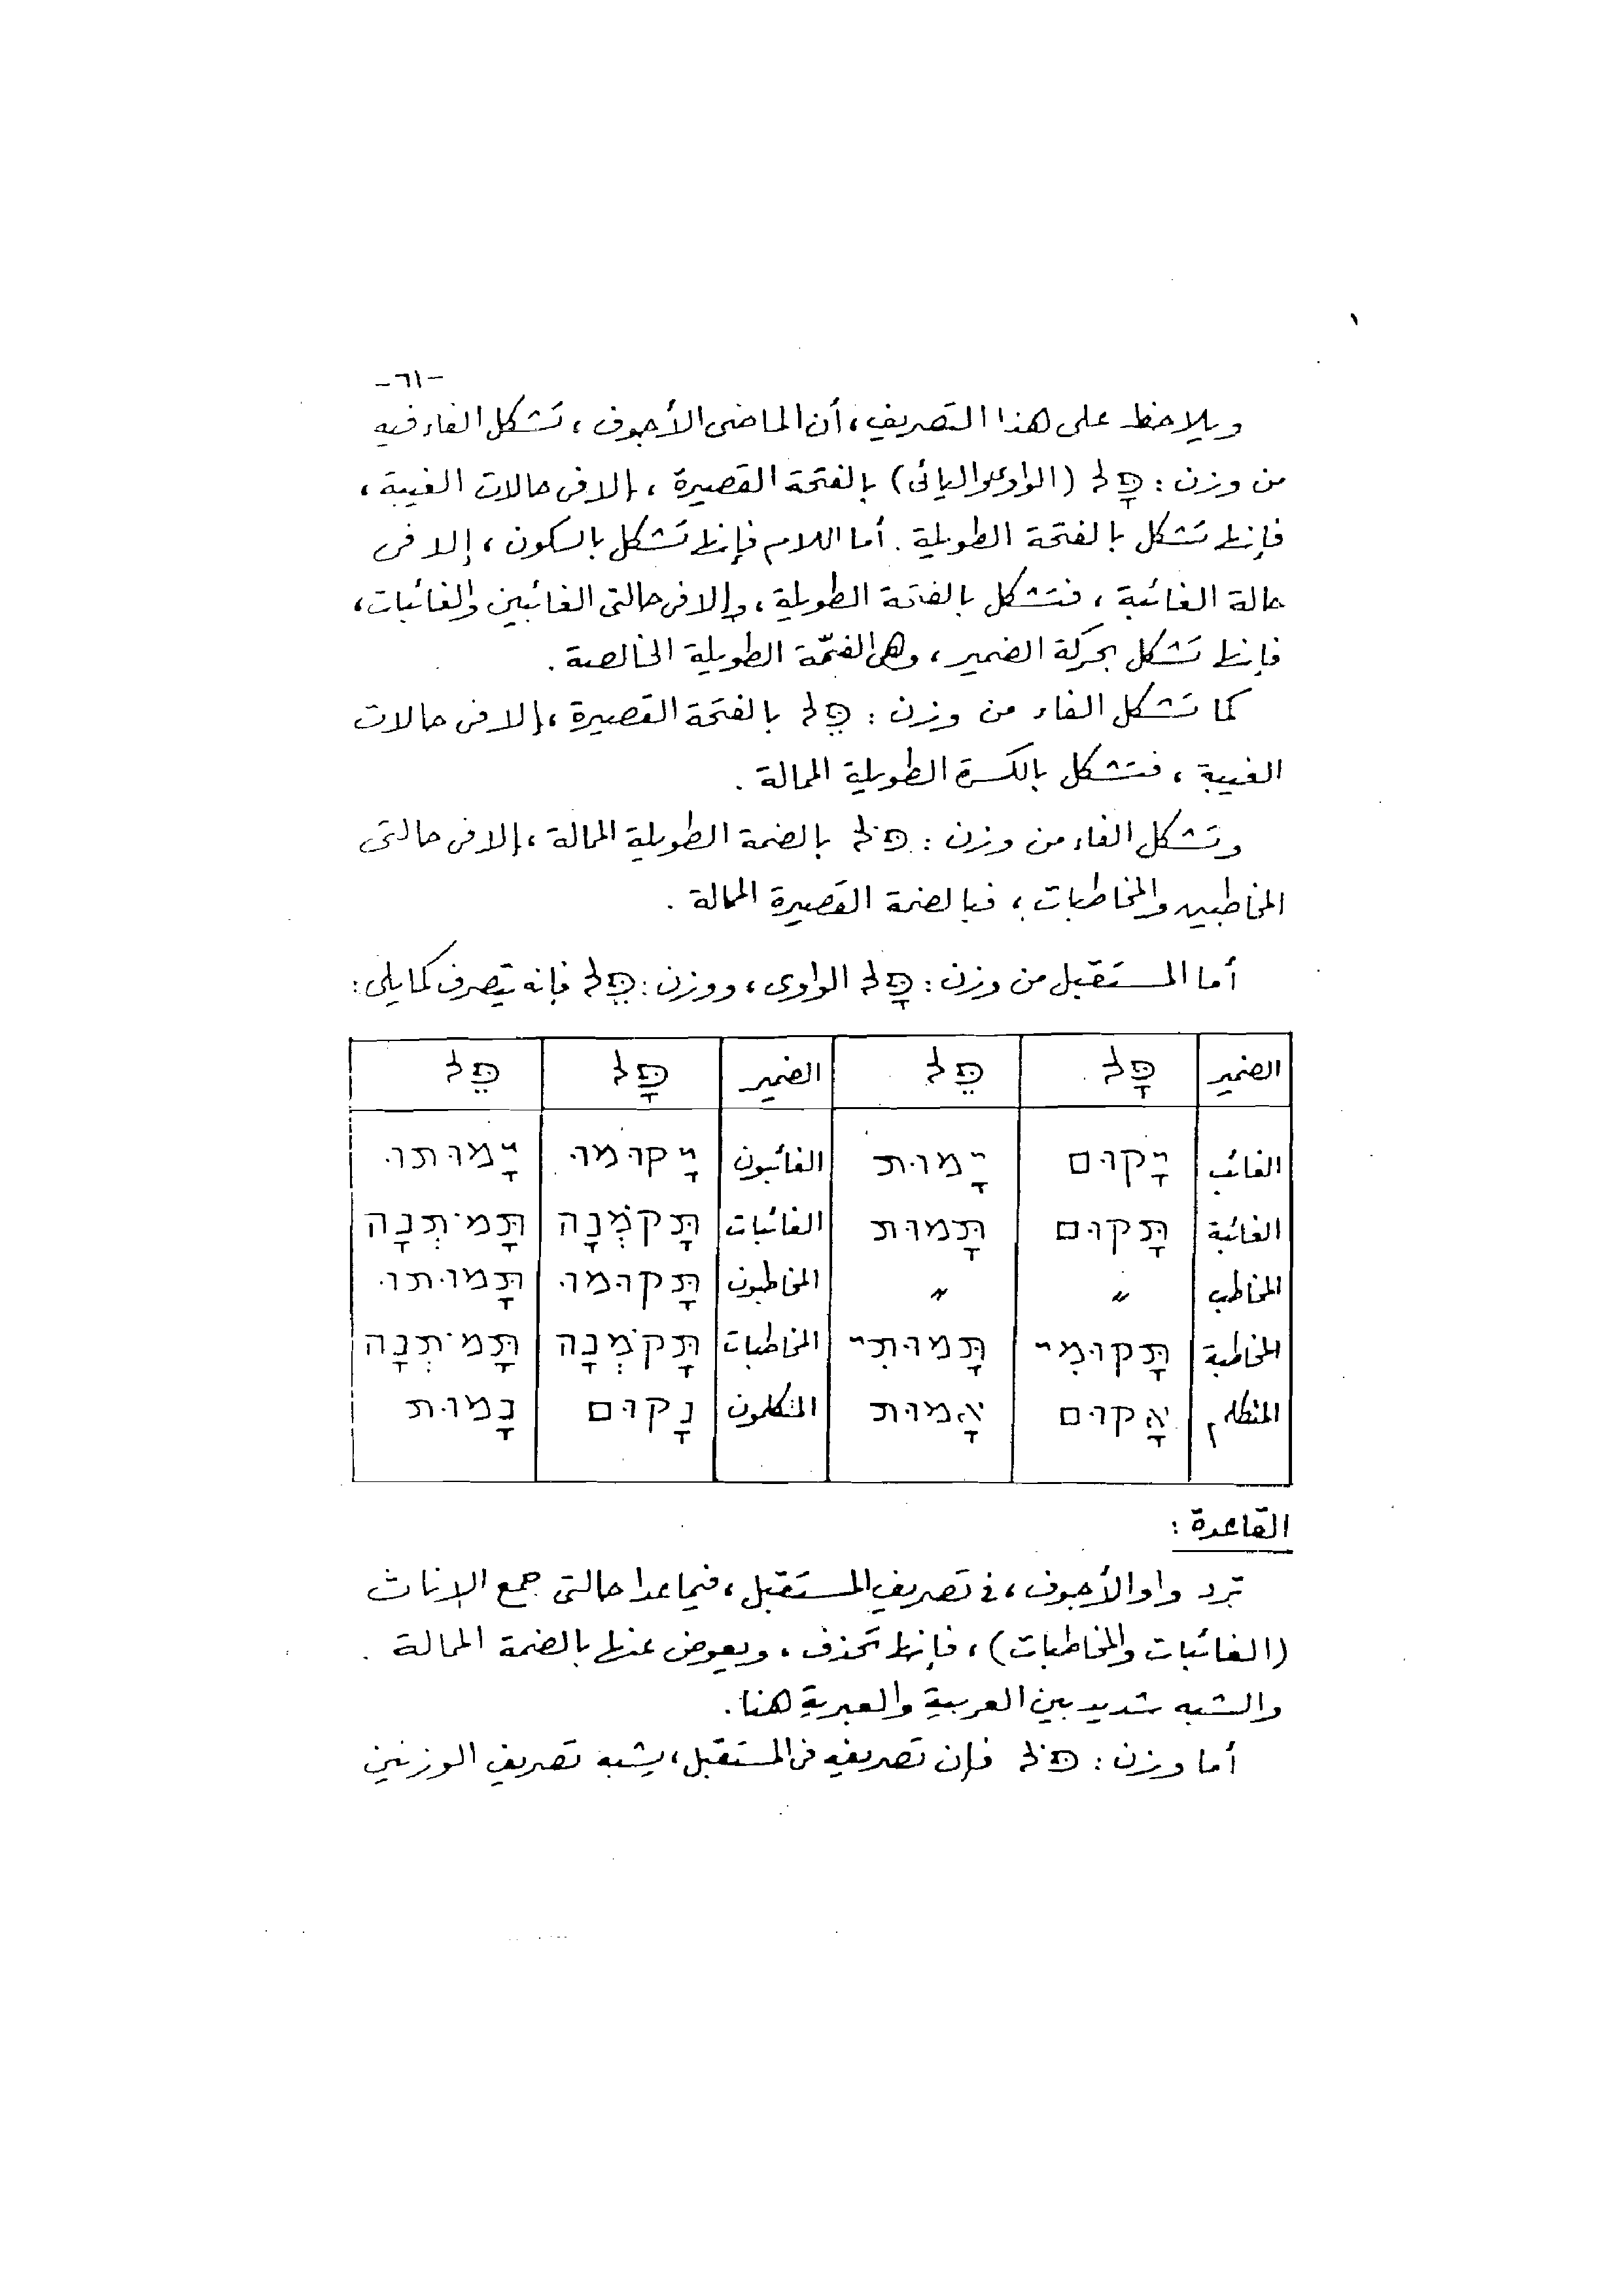 -٦١-
ويلاحظ على هذا التصريف، أن الماضى الأجوف، تشكل الفاء فيه
من وزن : פָּל (الواوى واليائى) بالفتحة القصيرة، إلا فى حالات الغيبة،
فإنها تشكل بالفتحة الطويلة. أما اللام فإنها تشكل بالسكون، إلا فى
حالة الغائبة، فتشكل بالفتحة الطويلة، وإلا فى حالتى الغائبين والغائبات،
فإنها تشكل بحركة الضمير، وهى الضمّة الطويلة الخالصة.
كما تشكل الفاء من وزن : פֵּל بالفتحة القصيرة، إلا فى حالات
الغيبة، فتشكل بالكسرة الطويلة الممالة.
وتشكل الفاء من وزن : פֹּל بالضمة الطويلة الممالة، إلا فى حالتى
المخاطبين والمخاطبات، فبالضمة القصيرة الممالة.
أما المستقبل من وزن : פָּל الواوى، ووزن : פֵּל فإنه يتصرف كما يلى :
الضمير פָּל פֵּל الضمير פָּל פֵּל
الغائب יָקוּם יָמוּת الغائبون יָקוּמוּ יָמוּתוּ
الغائبة תָּקוּם תָּמוּת الغائبات תָּקֹמְנָה תָּמֹתְנָה
المخاطب 〃 〃 المخاطبون תָּקוּמוּ תָּמוּתוּ
المخاطبة תָּקוּמִי תָּמוּתִי المخاطبات תָּקֹמְנָה תָּמֹתְנָה
المتكلم אָקוּם אָמוּת المتكلمون נָקוּם נָמוּת
القاعدة :
ترد واو الأجوف، فى تصريف المستقبل، فيما عدا حالتى جمع الإناث
(الغائبات والمخاطبات)، فإنها تحذف، ويعوض عنها بالضمة الممالة.
والشبه شديد بين العربية والعبرية هنا.
أما وزن : פֹּל فإن تصريفه فى المستقبل، يشبه تصريف الوزنين